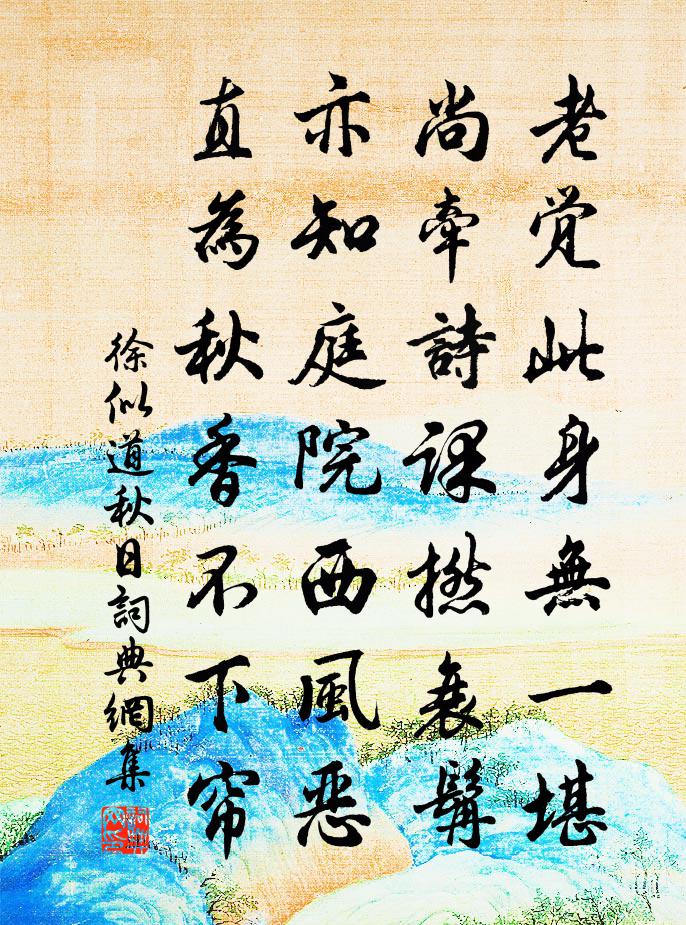 老覚此身無一堪
尚牽詩課撚衰髯
亦知庭院西風恶
直為秋香不下帘
徐似道秋日詞典網集